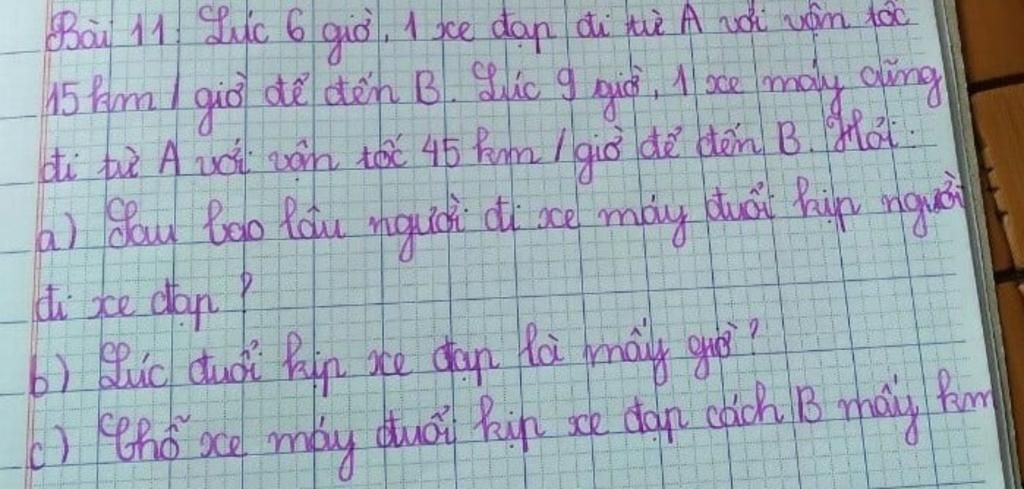 Bài 11. Lúc 6 giờ, 1 xe đạp đi từ A với vận tốc
15 km / giờ để đến B. Lúc 9 giờ, 1 xe máy cũng
đi từ A với vận tốc 45 km / giờ để đến B. Hỏi:
a) Sau bao lâu người đi xe máy đuổi kịp người
đi xe đạp?
b) Lúc đuổi kịp xe đạp là mấy giờ?
c) Chỗ xe máy đuổi kịp xe đạp cách B mấy km